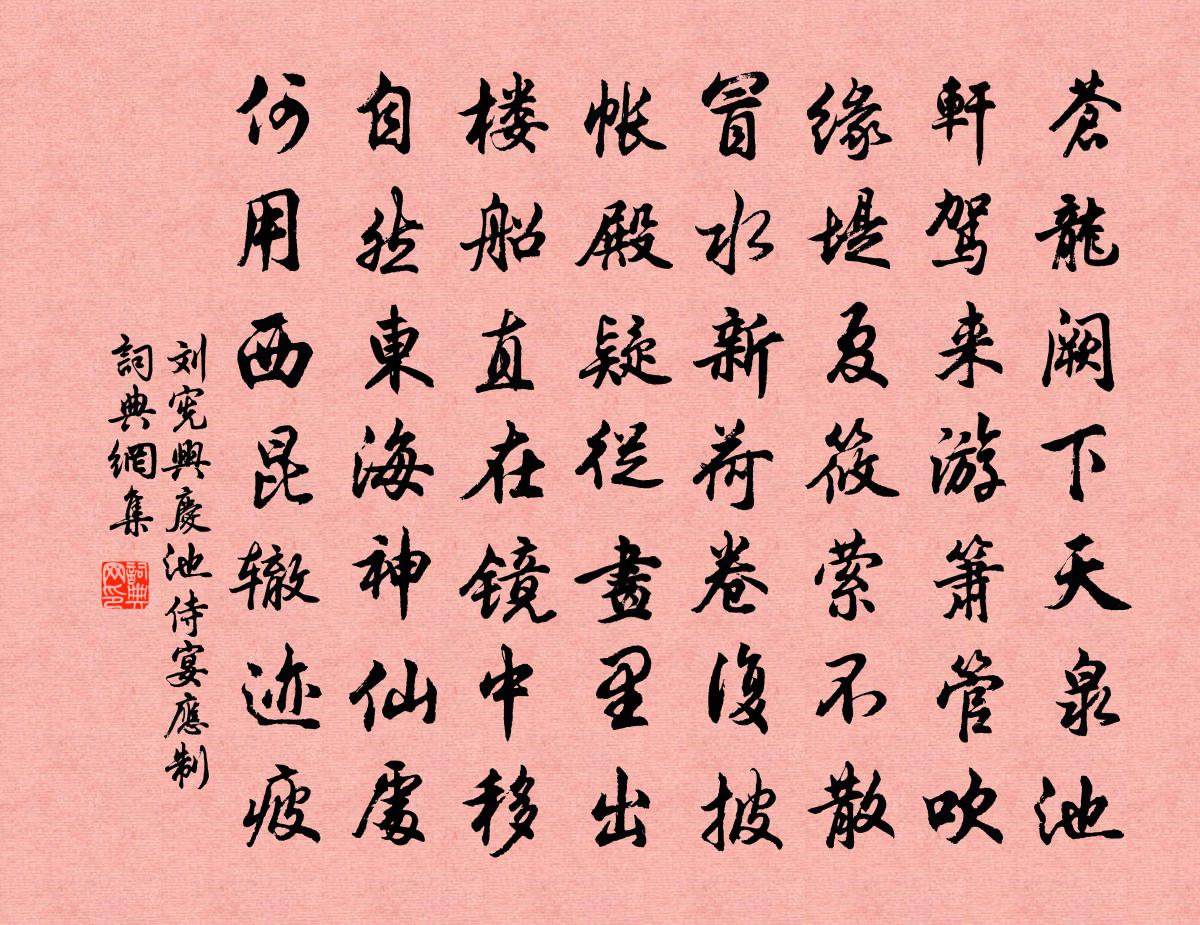 蒼龍阙下天泉池
軒駕来游簫管吹
缘堤夏筱萦不散
冒水新荷卷復披
帐殿疑從畫里出
楼船直在镜中移
自然東海神仙處
何用西昆辙迹疲
刘宪興慶池侍宴應制
詞典網集
詞典网印